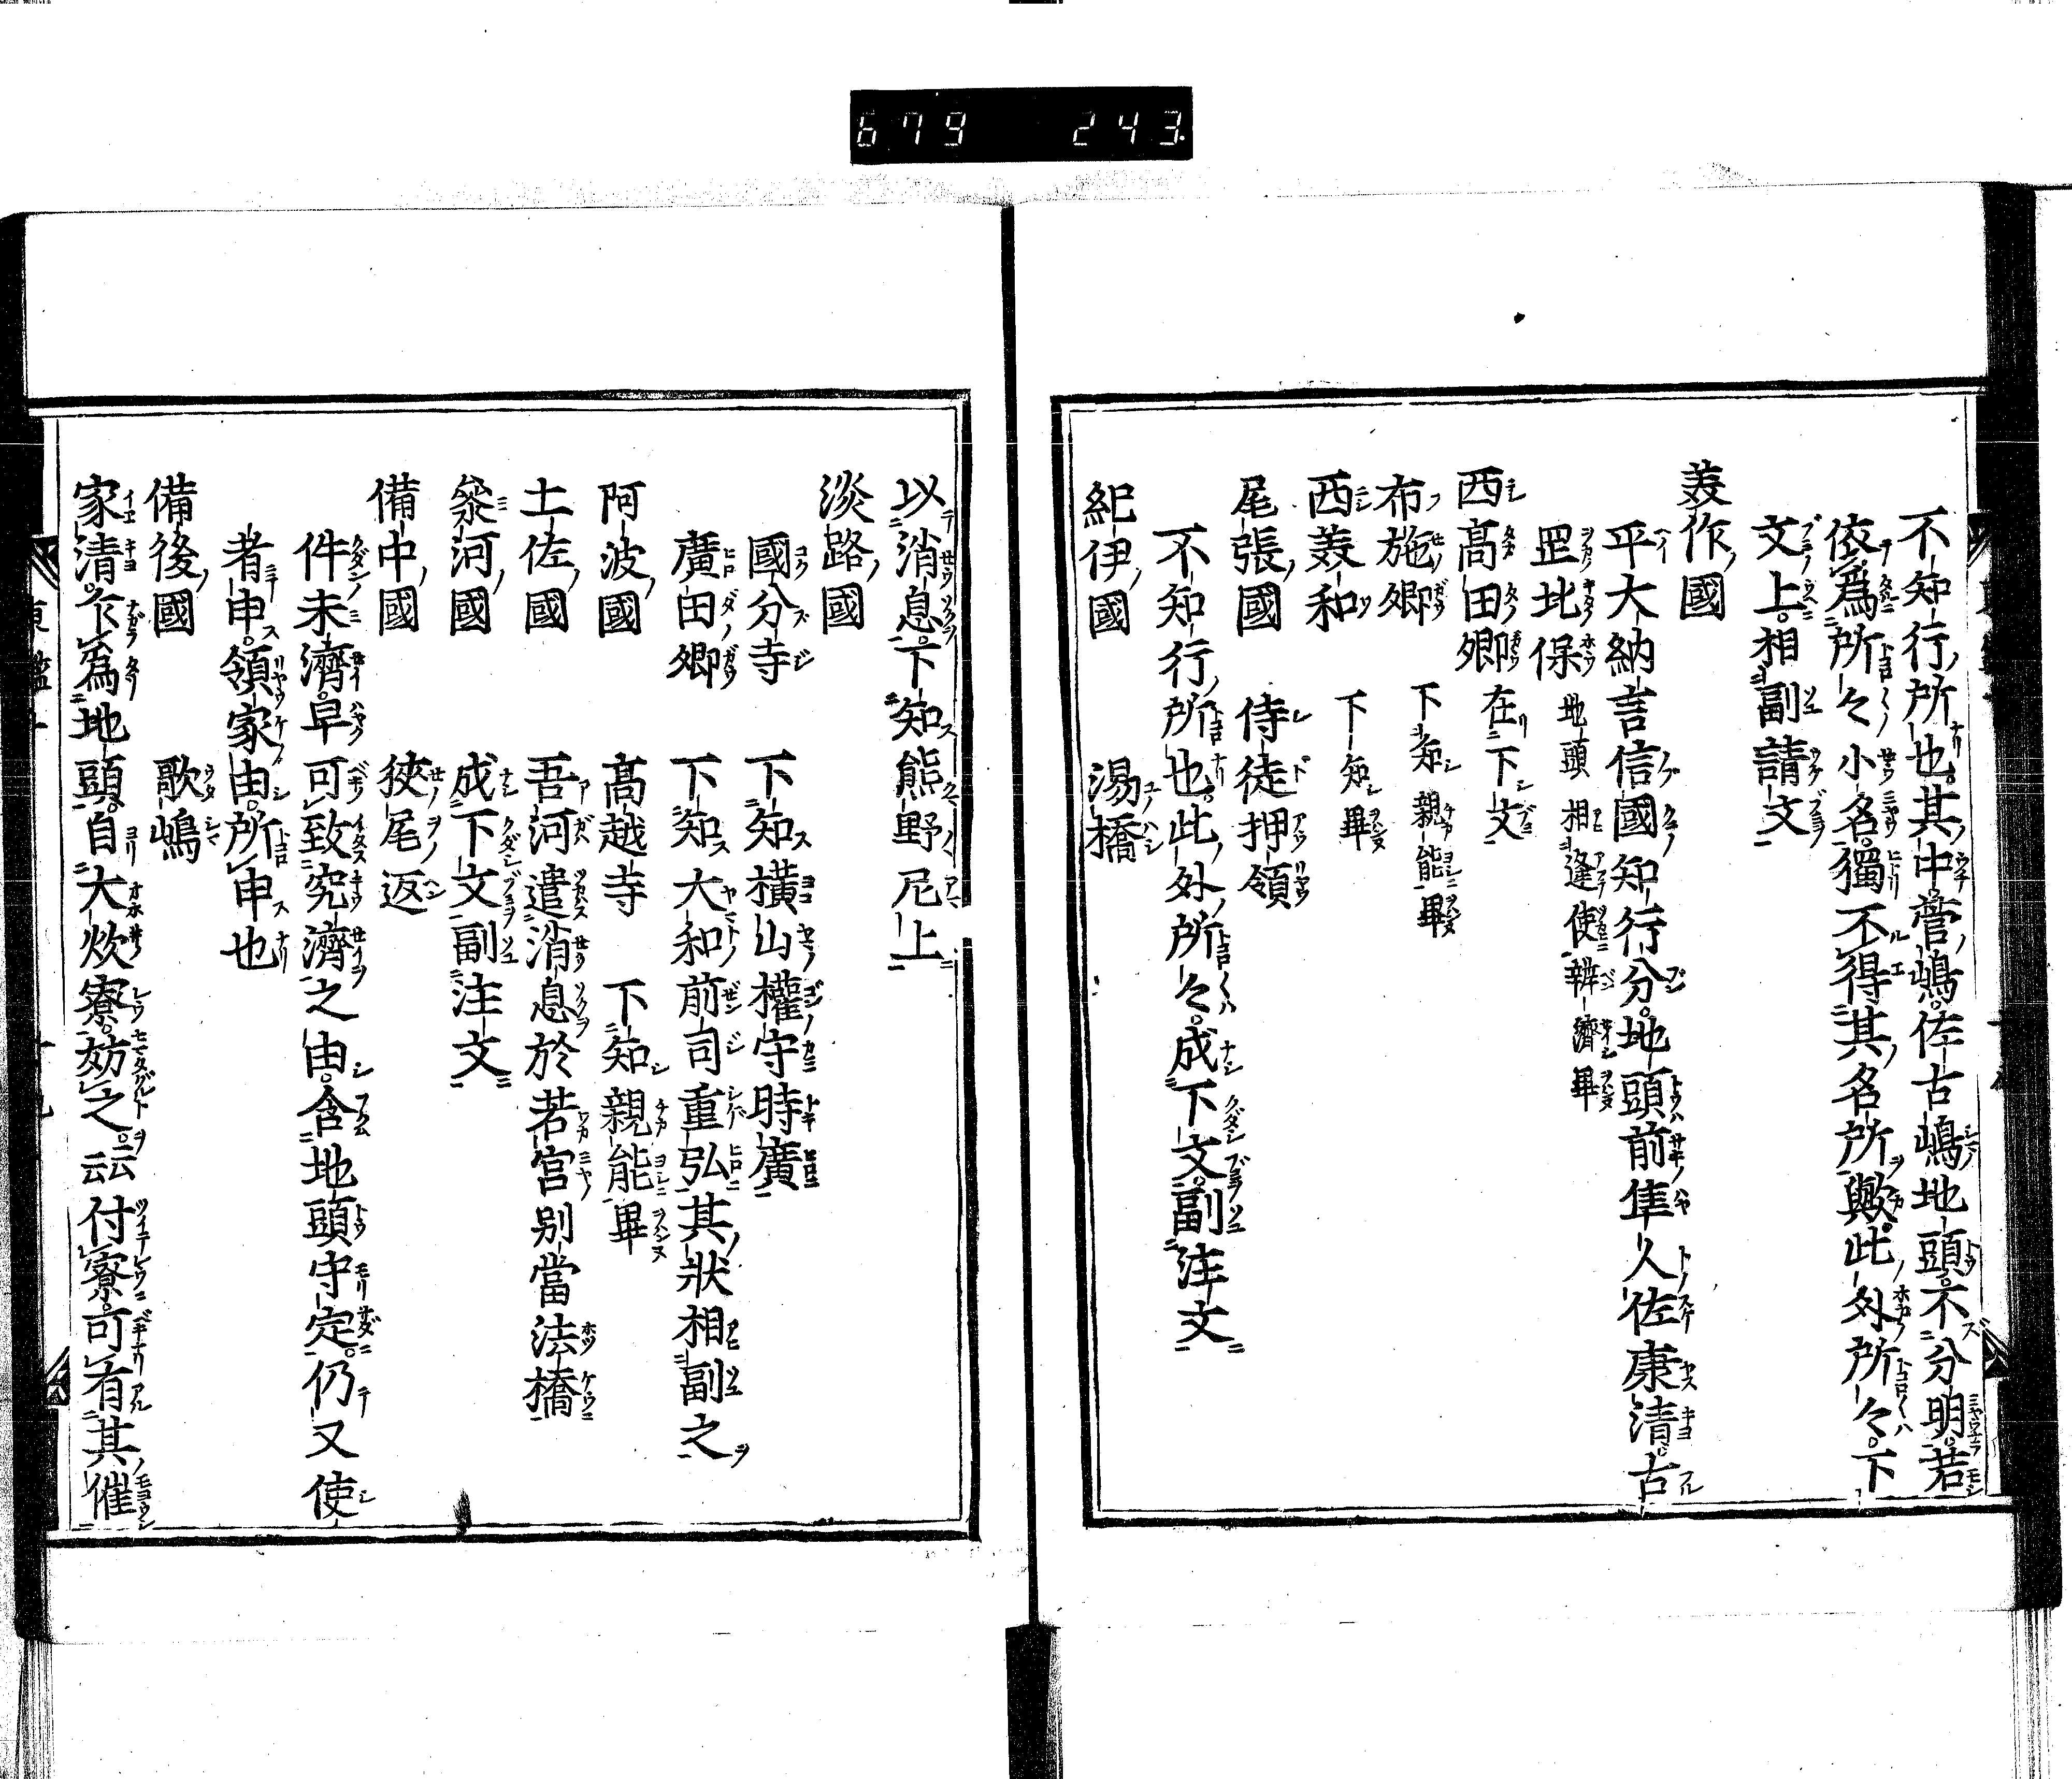 679 243
不知行所也其中菅嶋佐古嶋地頭不分明若
依爲所々小名獨不得其名所歟此外所々下
文上相副請文
美作國
平大納言信國知行分地頭前隼人佐康清古
罡北保 地頭相逢使辨濟畢
西高田郷 在下文
布施郷 下知親能畢
西美和 下知畢
尾張國 侍従押領
不知行所也此外所々成下文副注文
紀伊國 湯橋
以消息下知熊野尼上
淡路國
國分寺 下知横山權守時廣
廣田郷 下知大和前司重弘其狀相副之
阿波國 高越寺 下知親能畢
土佐國 吾河遣消息於若宮別當法橋
叅河國 成下文副注文
備中國 狹尾返
件未濟早可致究濟之由含地頭守定仍又使
者申領家由所申也
備後國 歌嶋
家清乍爲地頭自大炊寮妨之云云付寮可有其催